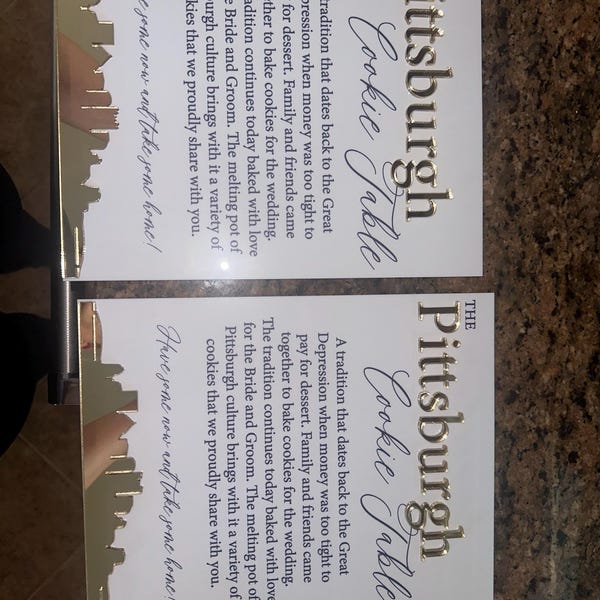 Pittsburgh
Cookie Table
tradition that dates back to the Great
pression when money was too tight to
for dessert. Family and friends came
ther to bake cookies for the wedding.
adition continues today baked with love
e Bride and Groom. The melting pot of
urgh culture brings with it a variety of
kies that we proudly share with you.
some now and take some home!
THE
Pittsburgh
Cookie Table
A tradition that dates back to the Great
Depression when money was too tight to
pay for dessert. Family and friends came
together to bake cookies for the wedding.
The tradition continues today baked with love
for the Bride and Groom. The melting pot of
Pittsburgh culture brings with it a variety of
cookies that we proudly share with you.
Have some now and take some home!